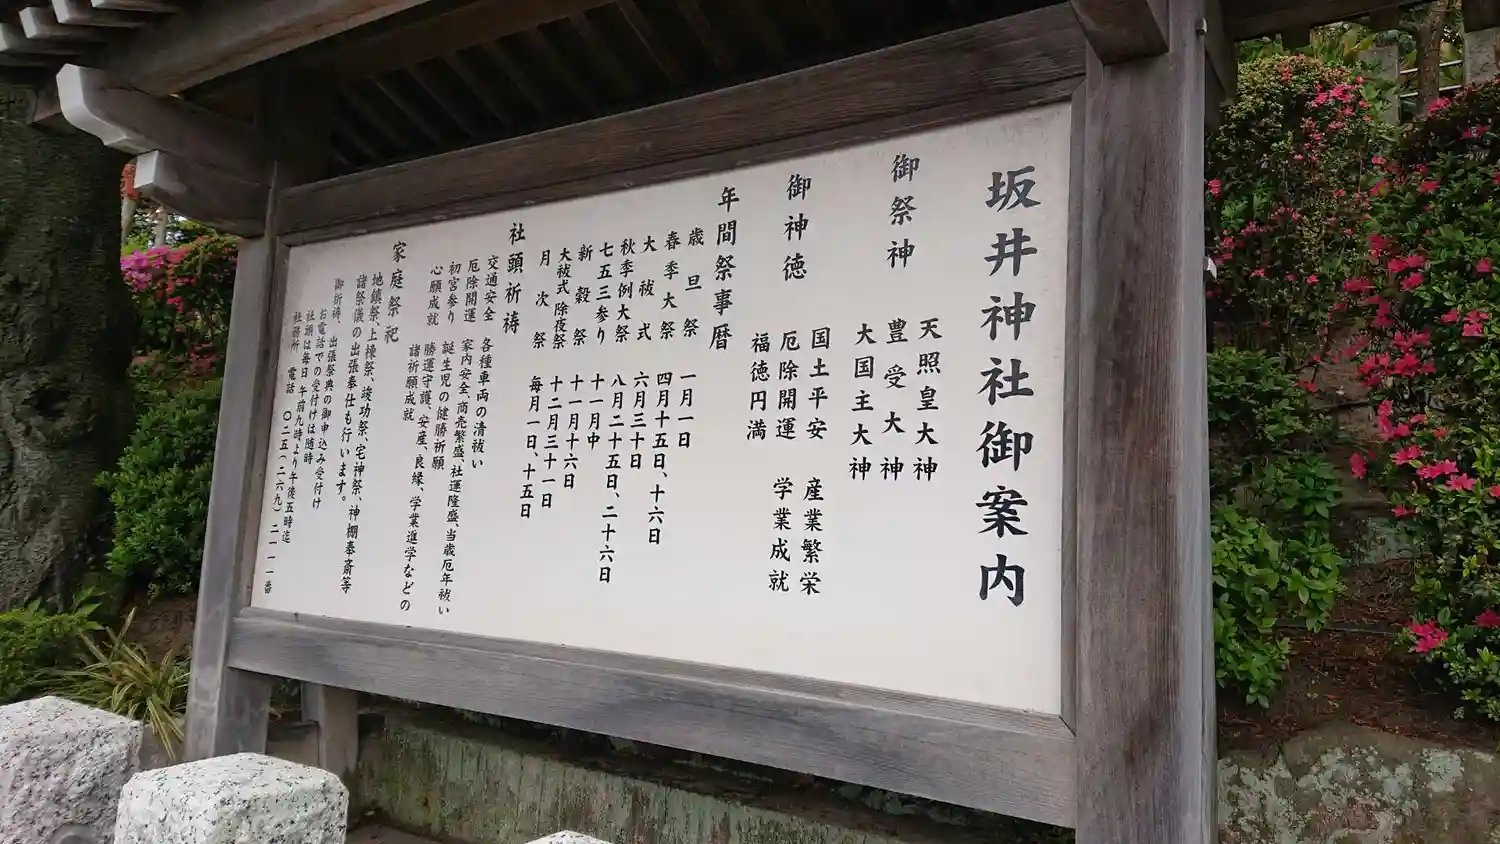 坂井神社御案内
御祭神
天照皇大神
豊受大神
大国主大神
御神徳
国土平安 産業繁栄
厄除開運 学業成就
福徳円満
年間祭事暦
歳旦祭 一月一日
春季大祭 四月十五日、十六日
大祓式 六月三十日
秋季例大祭 八月二十五日、二十六日
七五三参り 十一月中
新穀祭 十一月十六日
大祓式 除夜祭 十二月三十一日
月次祭 毎月一日、十五日
社頭祈祷
交通安全 各種車両の清祓い
厄除開運 家内安全、商売繁盛、社運隆盛、当歳厄年祓い
初宮参り 誕生児の健勝祈願
心願成就 勝運守護、安産、良縁、学業進学などの
諸祈願成就
家庭祭祀
地鎮祭、上棟祭、竣功祭、宅神祭、神棚奉斎等
諸祭儀の出張奉仕も行います。
御祈祷、出張祭典の御申込み受付け
お電話での受付けは随時
社頭は毎日 午前九時より午後五時迄
社務所 電話 〇二五(二六九)二一一一番